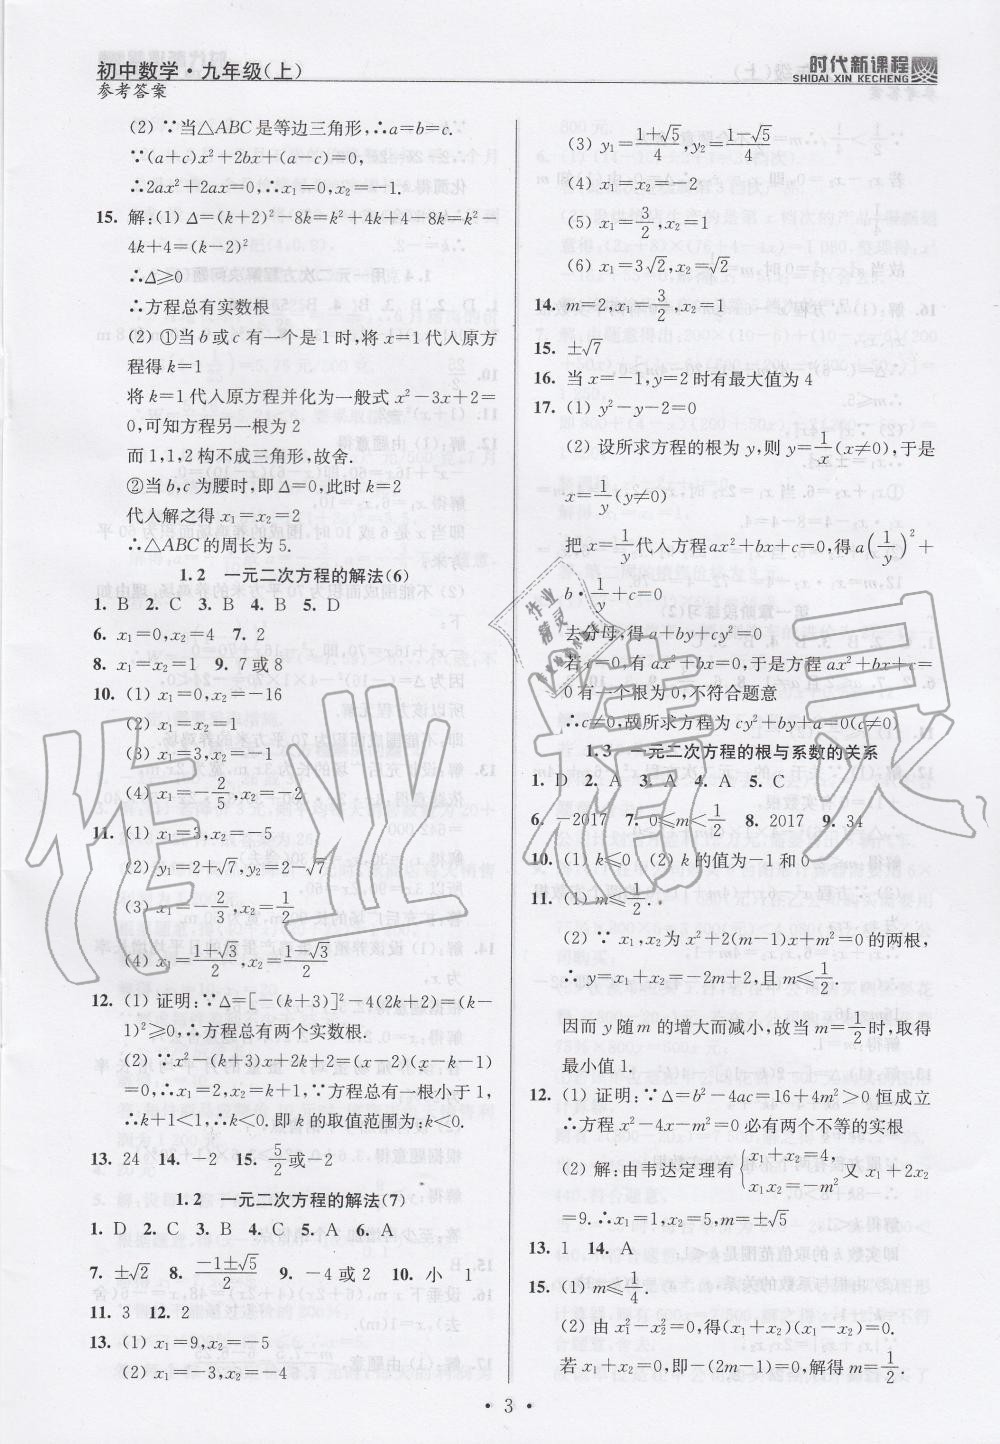 初中数学·九年级(上)
时代新课程
SHIDAI XIN KECHENG
参考答案
(2) ∵当△ABC是等边三角形,∴a=b=c.
∵(a+c)x²+2bx+(a-c)=0,
∴2ax²+2ax=0,∴x₁=0,x₂=-1.
15. 解:(1) Δ=(k+2)²-8k=k²+4k+4-8k=k²-
4k+4=(k-2)²
∴Δ≥0
∴方程总有实数根
(2) ①当b或c有一个是1时,将x=1代入原方
程得k=1
将k=1代入原方程并化为一般式x²-3x+2=
0,可知方程另一根为2
而1,1,2构不成三角形,故舍.
②当b,c为腰时,即Δ=0,此时k=2
代入解之得x₁=x₂=2
∴△ABC的周长为5.
1.2 一元二次方程的解法(6)
1. B 2. C 3. B 4. B 5. D
6. x₁=0,x₂=4 7. 2
8. x₁=x₂=1 9. 7或8
10. (1) x₁=0,x₂=-16
(2) x₁=x₂=1
(3) x₁=-3,x₂=-1
(4) x₁=-2/5,x₂=-2
11. (1) x₁=3,x₂=-5
(2) y₁=2+√7,y₂=2-√7
(3) x₁=-2/3,x₂=1/2
(4) x₁=(1+√3)/2,x₂=(1-√3)/2
12. (1) 证明:∵Δ=[-(k+3)]²-4(2k+2)=(k-
1)²≥0,∴方程总有两个实数根.
(2) ∵x²-(k+3)x+2k+2=(x-2)(x-k-1)
=0,∴x₁=2,x₂=k+1,∵方程总有一根小于1,
∴k+1<1,∴k<0.即k的取值范围为:k<0.
13. 24 14. -2 15. 5/2或-2
1.2 一元二次方程的解法(7)
1. D 2. C 3. B 4. C 5. A 6. A
7. ±√2 8. (-1±√5)/2 9. -4或2 10. 小 1
11. 3 12. 2
13. (1) x₁=9,x₂=-5
(2) x₁=-3,x₂=-4
(3) y₁=(1+√5)/4,y₂=(1-√5)/4
(4) x₁=x₂=-2
(5) x₁=3/2,x₂=1
(6) x₁=3√2,x₂=√2
14. m=2,x₁=3/2,x₂=1
15. ±√7
16. 当x=-1,y=2时有最大值为4
17. (1) y²-y-2=0
(2) 设所求方程的根为y,则y=1/x(x≠0),于是
x=1/y(y≠0)
把x=1/y代入方程ax²+bx+c=0,得a(1/y)²+
b·1/y+c=0
去分母,得a+by+cy²=0
若c=0,有ax²+bx=0,于是方程ax²+bx+c=
0有一个根为0,不符合题意
∴c≠0,故所求方程为cy²+by+a=0(c≠0)
1.3 一元二次方程的根与系数的关系
1. D 2. A 3. A 4. A 5. C
6. -2017 7. 0≤m<1/2 8. 2017 9. 34
10. (1) k≤0 (2) k的值为-1和0
11. (1) m≤1/2.
(2) ∵x₁,x₂为x²+2(m-1)x+m²=0的两根,
∴y=x₁+x₂=-2m+2,且m≤1/2.
因而y随m的增大而减小,故当m=1/2时,取得
最小值1.
12. (1) 证明:∵Δ=b²-4ac=16+4m²>0恒成立
∴方程x²-4x-m²=0必有两个不等的实根
(2) 解:由韦达定理有{x₁+x₂=4, x₁x₂=-m² 又x₁+2x₂
=9.∴x₁=1,x₂=5,m=±√5
13. 1 14. A
15. (1) m≤1/4.
(2) 由x₁²-x₂²=0,得(x₁+x₂)(x₁-x₂)=0.
若x₁+x₂=0,即-(2m-1)=0,解得m=1/2.
·3·
作业精灵